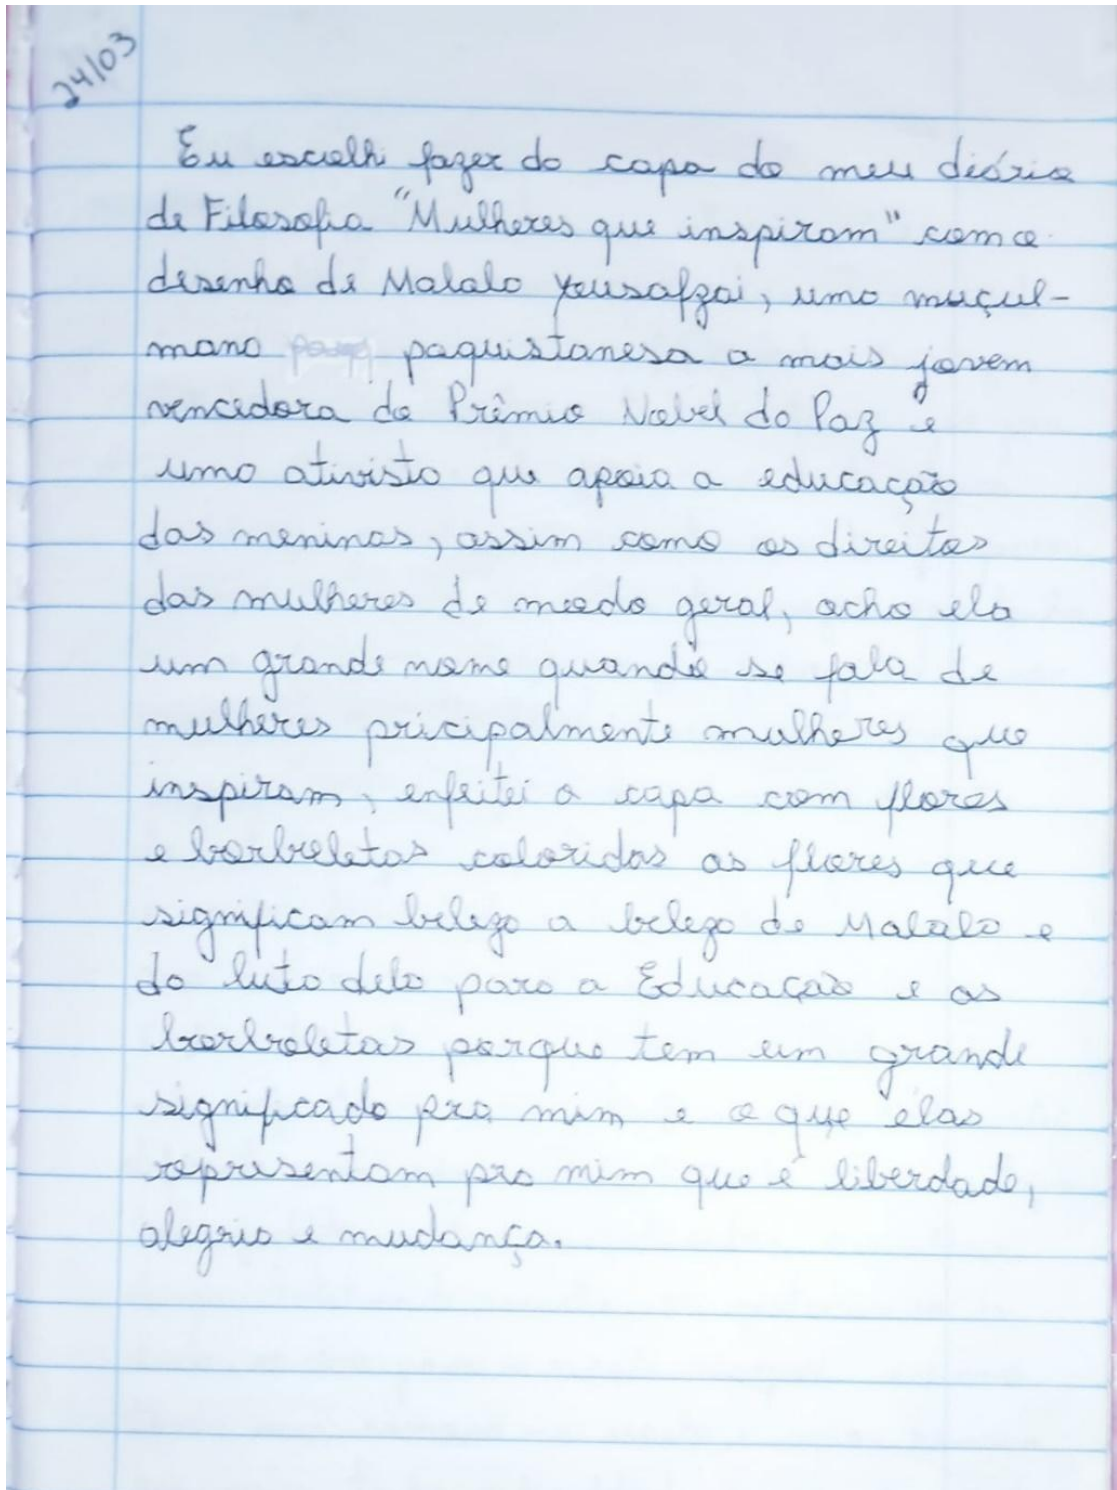 24/03
Eu escolhi fazer da capa do meu diário
de Filosofia "Mulheres que inspiram" com o
desenho de Malala Yousafzai, uma muçul-
mana paquistanesa a mais jovem
vencedora do Prêmio Nobel da Paz e
uma ativista que apoia a educação
das meninas, assim como os direitos
das mulheres de modo geral, acho ela
um grande nome quando se fala de
mulheres pricipalmente mulheres que
inspiram, enfeitei a capa com flores
e borboletas coloridas as flores que
significam beleza a beleza de Malala e
da luta dela para a Educação e as
borboletas porque tem um grande
significado pra mim e o que elas
representam pra mim que é liberdade,
alegria e mudança.